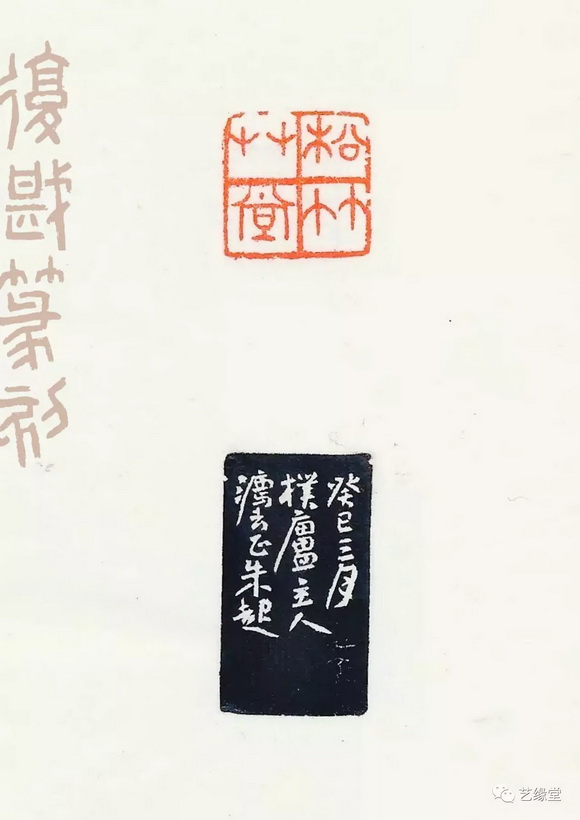 復戡篆刻
松竹
艸堂
癸巳三月
樸廬主人
灋正朱起
艺缘堂